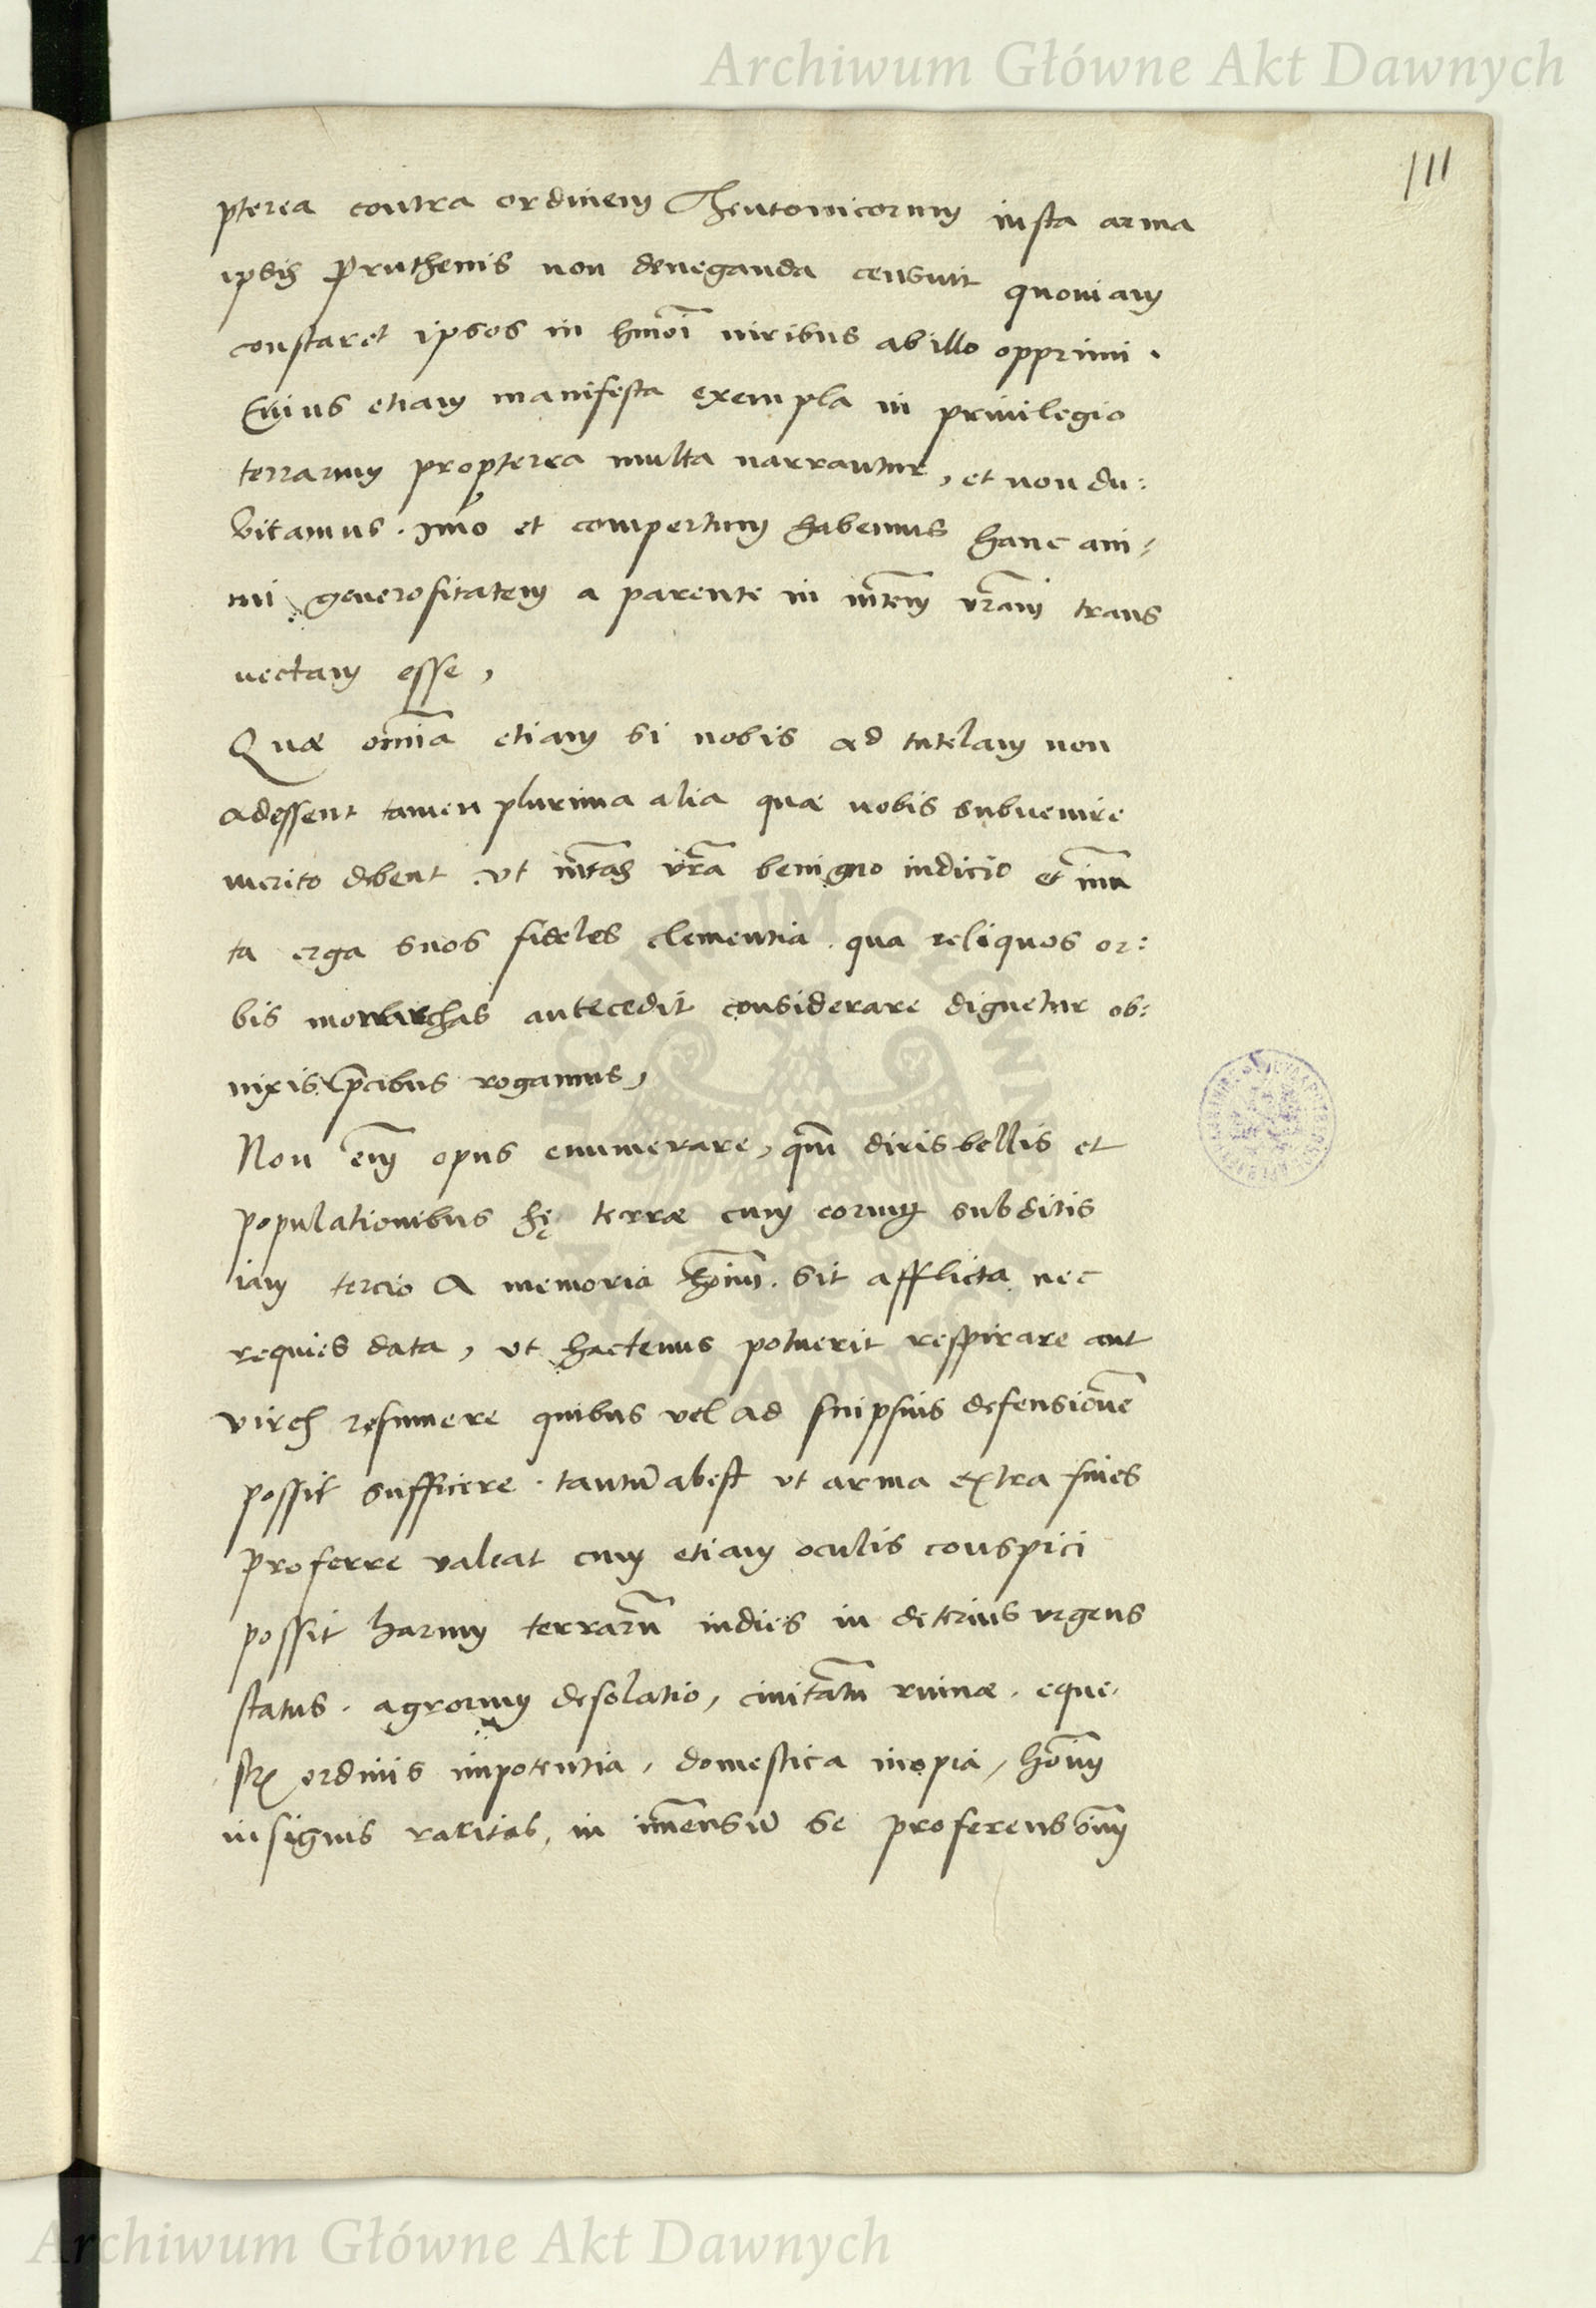 Archiwum Główne Akt Dawnych
111
pterea contra ordinem Theutonicorum iusta arma
ipsis Pruthenis non deneganda censuit quoniam
constaret ipsos in hmoi iuribus ab illo opprimi .
Cuius etiam manifesta exempla in priuilegio
terrarum propterea multa narrantur, et non du:
bitamus . Imo et compertum habemus hanc ani:
mi generositatem a parente in mtem vram trans
uectam esse,
Quæ omnia etiam si nobis ad tutelam non
adessent tamen plurima alia quæ nobis subuenire
merito debent . vt mtas vra benigno iudicio et inna
ta erga suos fideles clementia . qua reliquos or:
bis monarchas antecedit considerare dignetur ob:
nixis precibus rogamus,
Non em opus enumerare, qm diris bellis et
populationibus hę terræ cum eorum subditis
iam tercio a memoria hoim . sit afflicta nec
requies data, vt hactenus potuerit respirare aut
vires resumere quibus vel ad suipsius defensione
possit sufficere . tantu abest vt arma extra fines
proferre valeat cum etiam oculis conspici
possit harum terraru indies in deterius vrgens
status . agrorum desolatio, ciuitatu ruinæ . eque:
stris ordinis impotentia, domestica inopia, hoim
insignis raritas, in imensu se proferens oim
ARCHIWUM GŁÓWNE
AKT DAWNYCH
Archiwum Główne Akt Dawnych